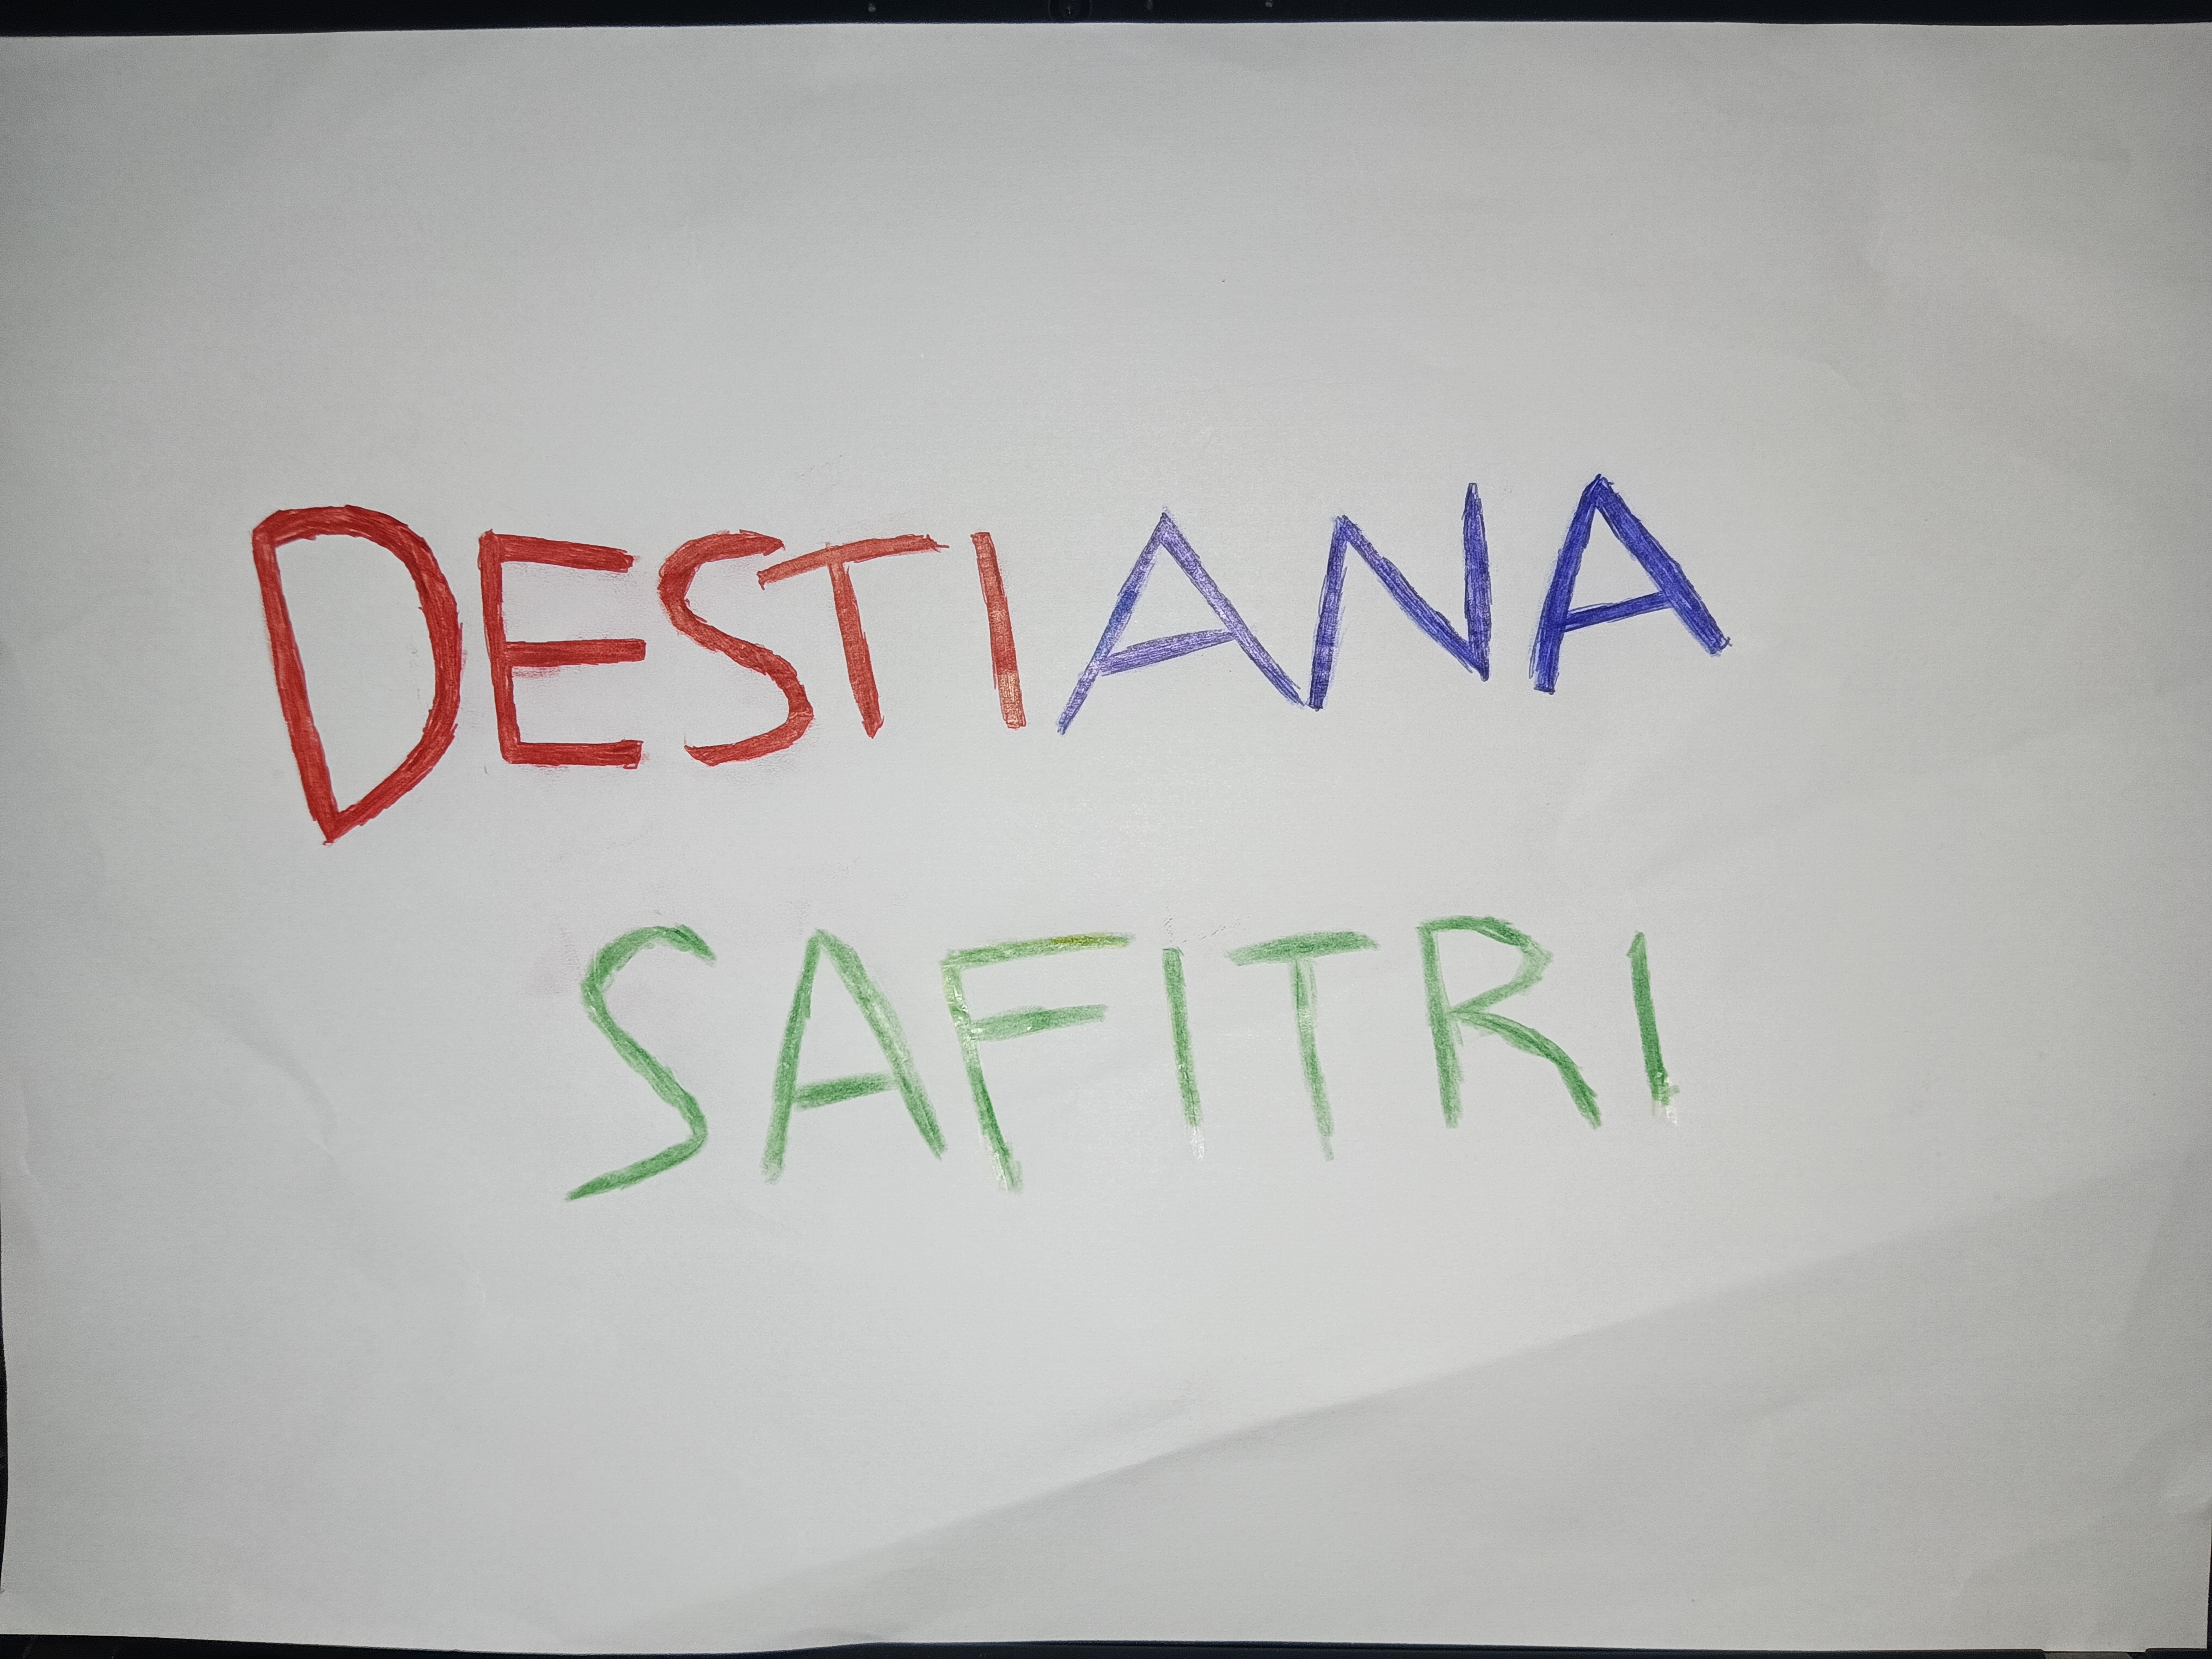 DESTIANA
SAFITRI